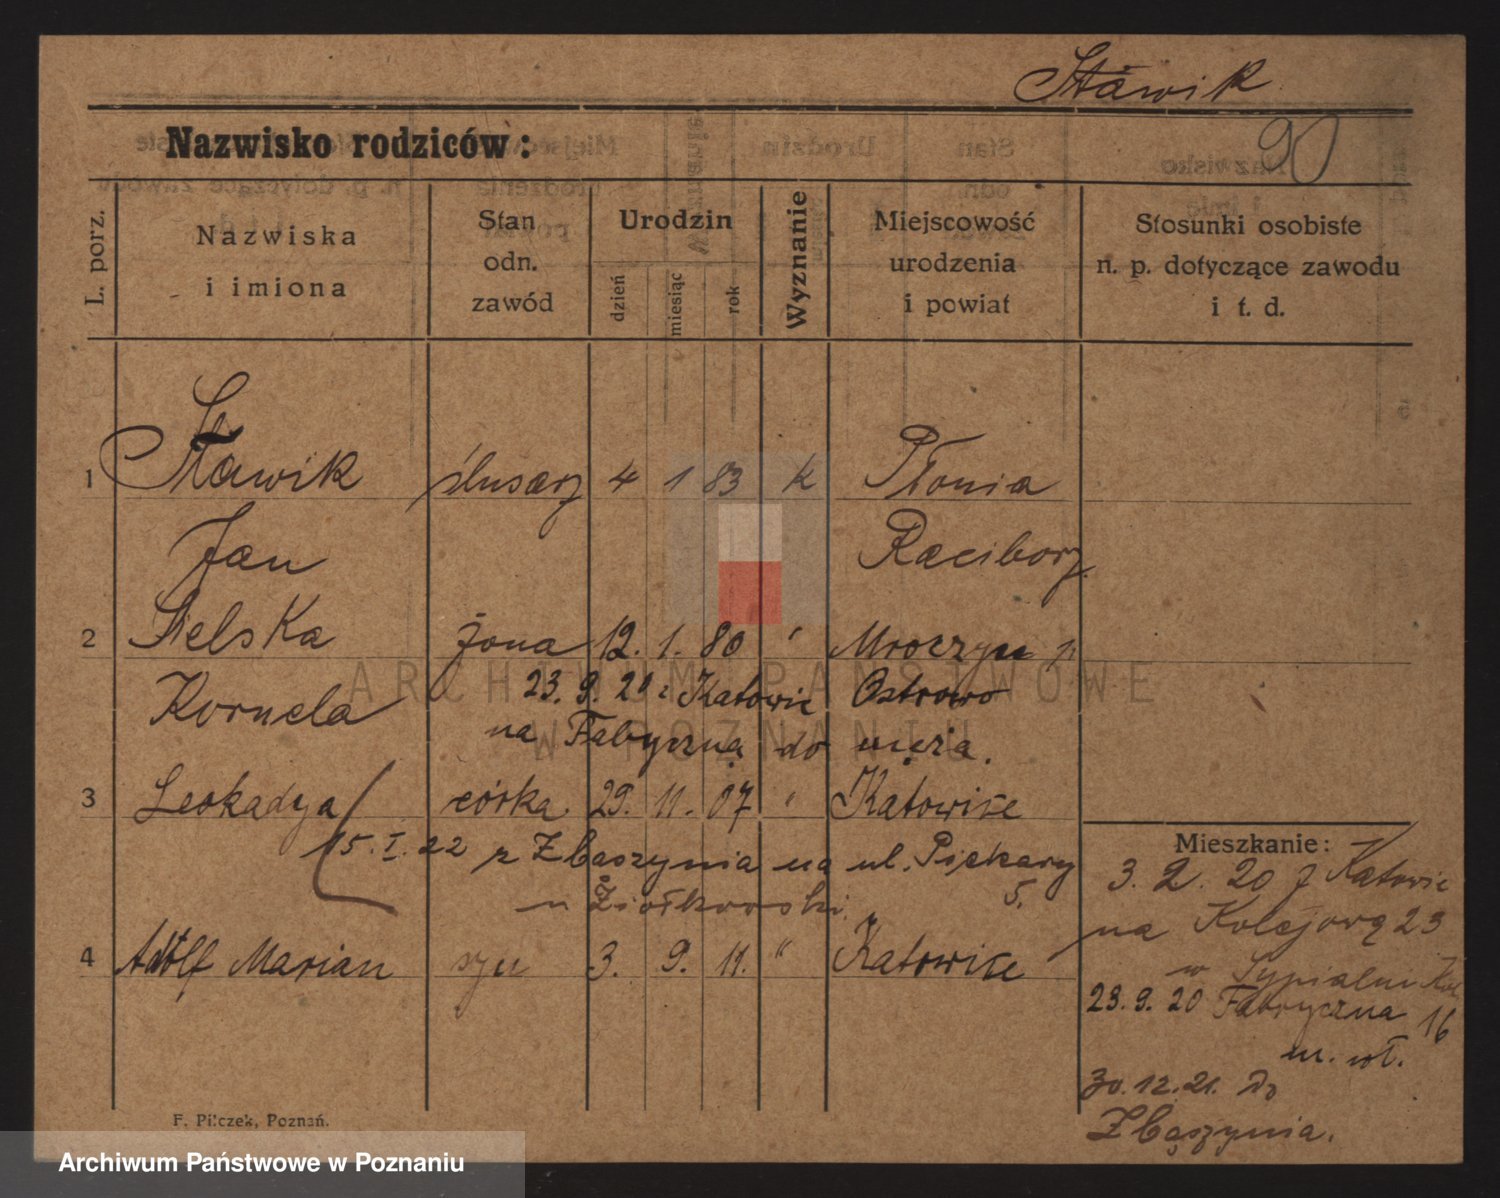 Stawik
90
Nazwisko rodziców:
L. porz.
Nazwiska
i imiona
Stan
odn.
zawód
Urodzin
dzień
miesiąc
rok
Wyznanie
Miejscowość
urodzenia
i powiat
Stosunki osobiste
n. p. dotyczące zawodu
i t. d.
1 Stawik ślusarz 4 1 83 k Płonia
Jan Raciborz
2 Sielska żona 12. 1. 80 " Mroczyn p
Kornela 23.9.20 z Katowic Ostrowo
na Fabryczną do męża.
3 Leokadya córka 29. 11. 07 " Katowice
15.I.22 z Zbąszynia na ul. Piekary
u Ziołkowski 5.
4 Adolf Marian syn 3. 9. 11. " Katowice
Mieszkanie:
3. 2. 20 z Katowic
na Kolejową 23
w Sypialni
23.9.20 Fabryczna 16
m. wł.
30.12.21. do
Zbąszynia.
F. Pilczek, Poznań.
ARCHIWUM PAŃSTWOWE
W POZNANIU
Archiwum Państwowe w Poznaniu